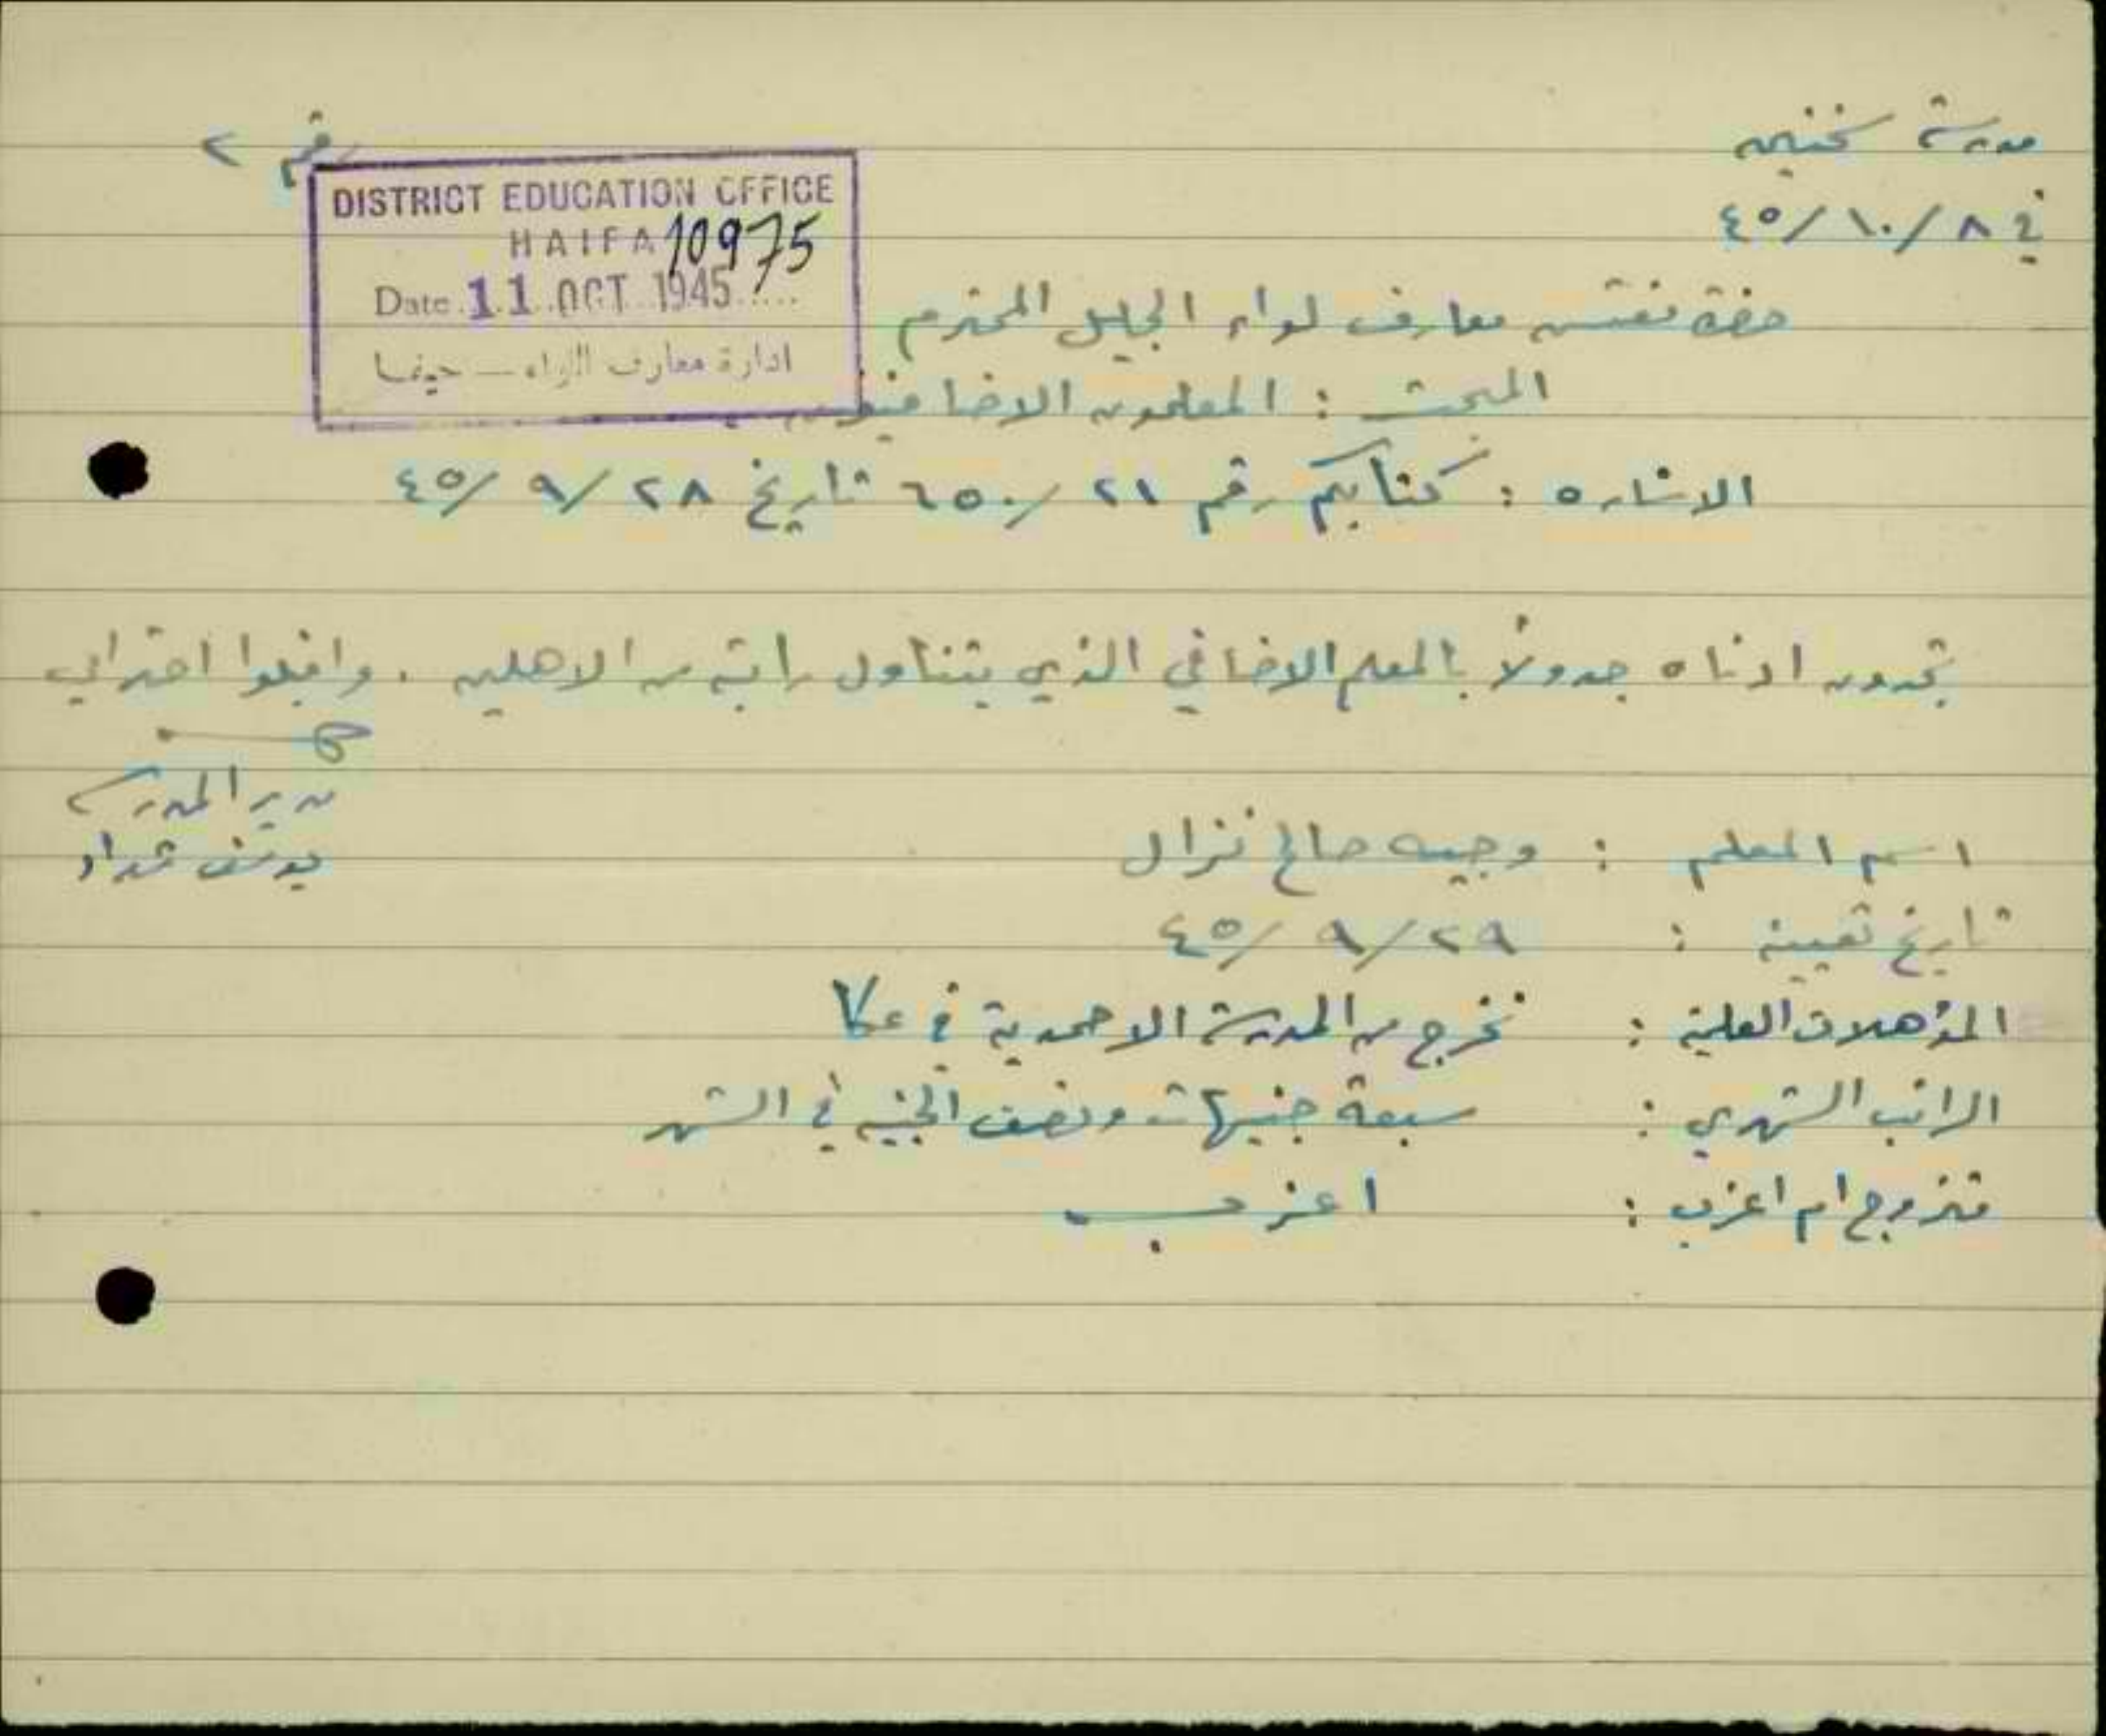 مدرسة سخنين
رقم ٢
في ٨/ ١٠/ ٤٥
DISTRICT EDUCATION OFFICE
HAIFA 10975
Date 11 OCT 1945
ادارة معارف اللواء — حيفا
حضرة مفتش معارف لواء الجليل المحترم
المبحث : المعلمون الاضافيون
الاشاره : كتابكم رقم ٢١ /٦٥٠ تاريخ ٢٨ /٩ /٤٥
تجدون ادناه جدولاً بالمعلم الاضافي الذي يتناول راتبه من الاهلين . واقبلوا احترامي
مدير المدرسة
يوسف شداد
اسم المعلم : وجيه صالح نزال
تاريخ تعيينه : ٢٩/ ٩ /٤٥
المؤهلات العلمية : تخرج من المدرسة الاحمدية في عكا
الراتب الشهري : سبعة جنيهات ونصف الجنيه في الشهر
متزوج ام اعزب : اعزب